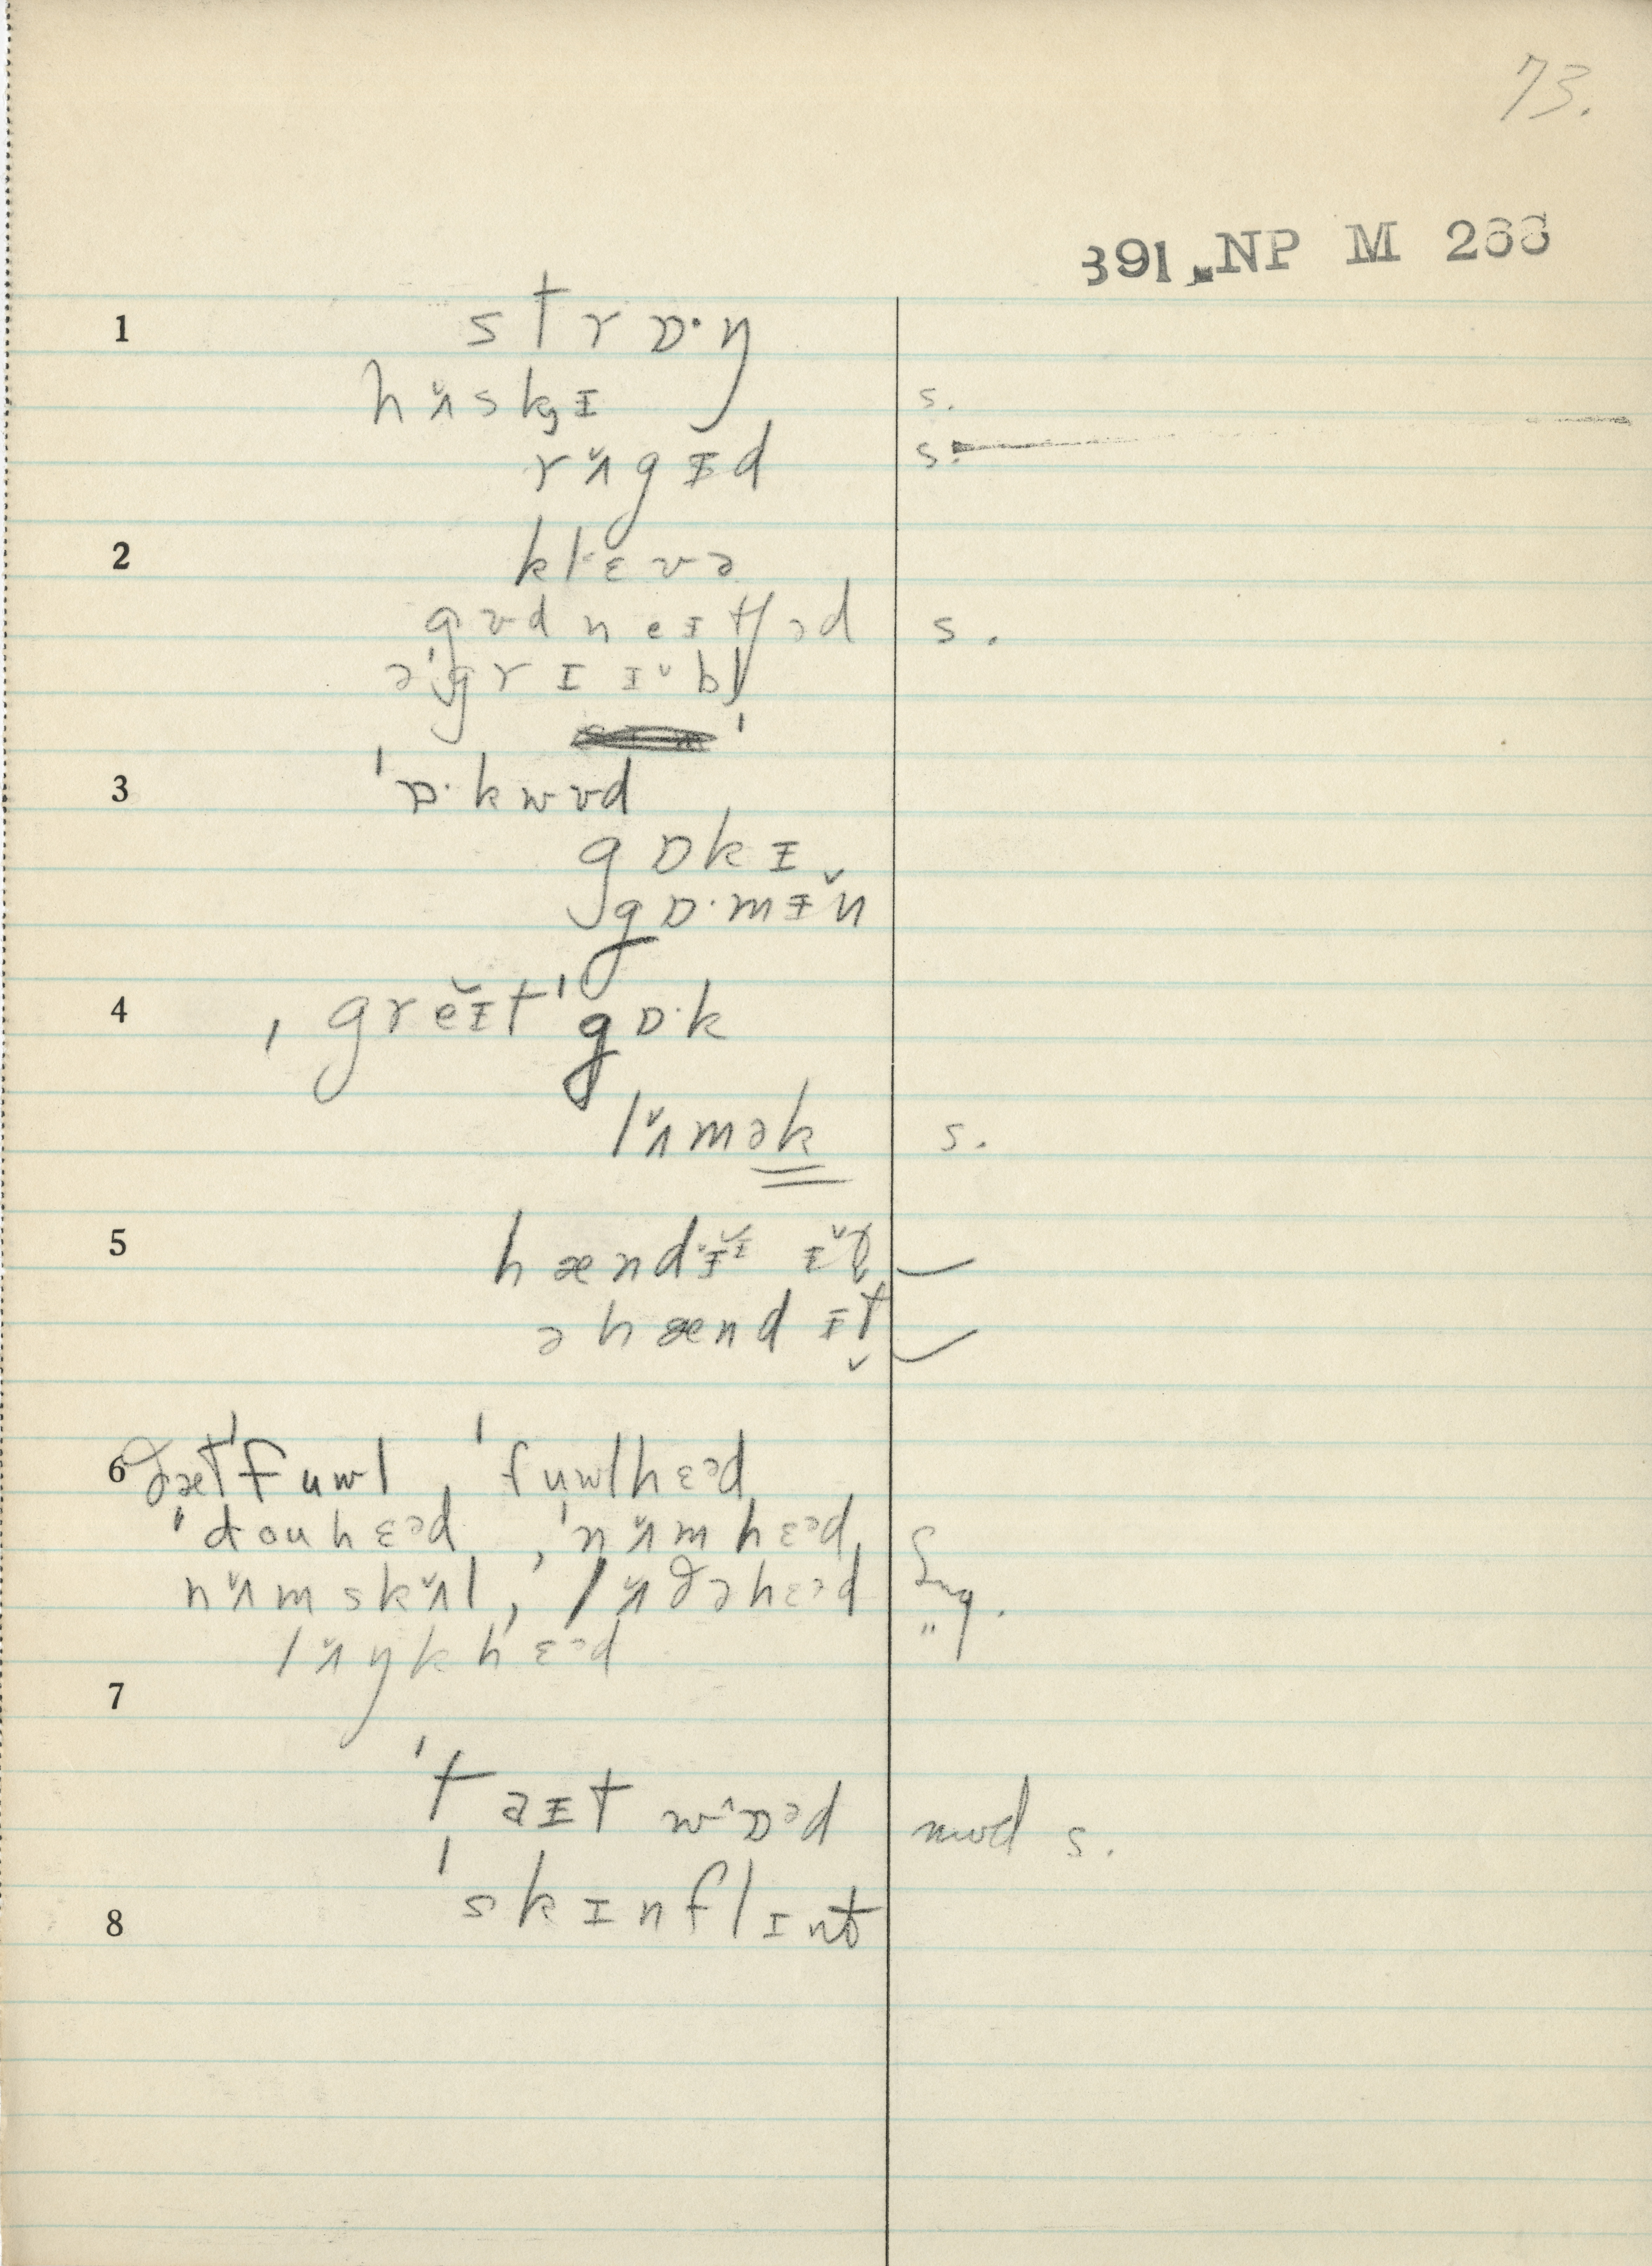 73.
391. NP M 266
1 strɒ·ŋ
hʌ̆skɪ s.
rʌ̆gɪd s.
2 klɛvə
gʊdneɪtʃəd s.
ə'grɪɪəbl̩
3 'ɒ·kwʊd
gɒkɪ
gɒ·mɪ̆n
4 ˌgrĕɪt'gɒ·k
lʌ̆mək s.
5 hændɪɪ̆ ɪ̆t̬
ə hænd ɪt̬
6 ðæt'fuwl, 'fuwlhɛəd
'douhɛəd, 'nʌ̆mhɛəd, Eng.
nʌ̆mskʌ̆l, lʌ̆ðəhɛəd "
lʌ̆ŋkhɛəd
7
'taɪt wɒəd mod s.
'skɪnflɪnt
8